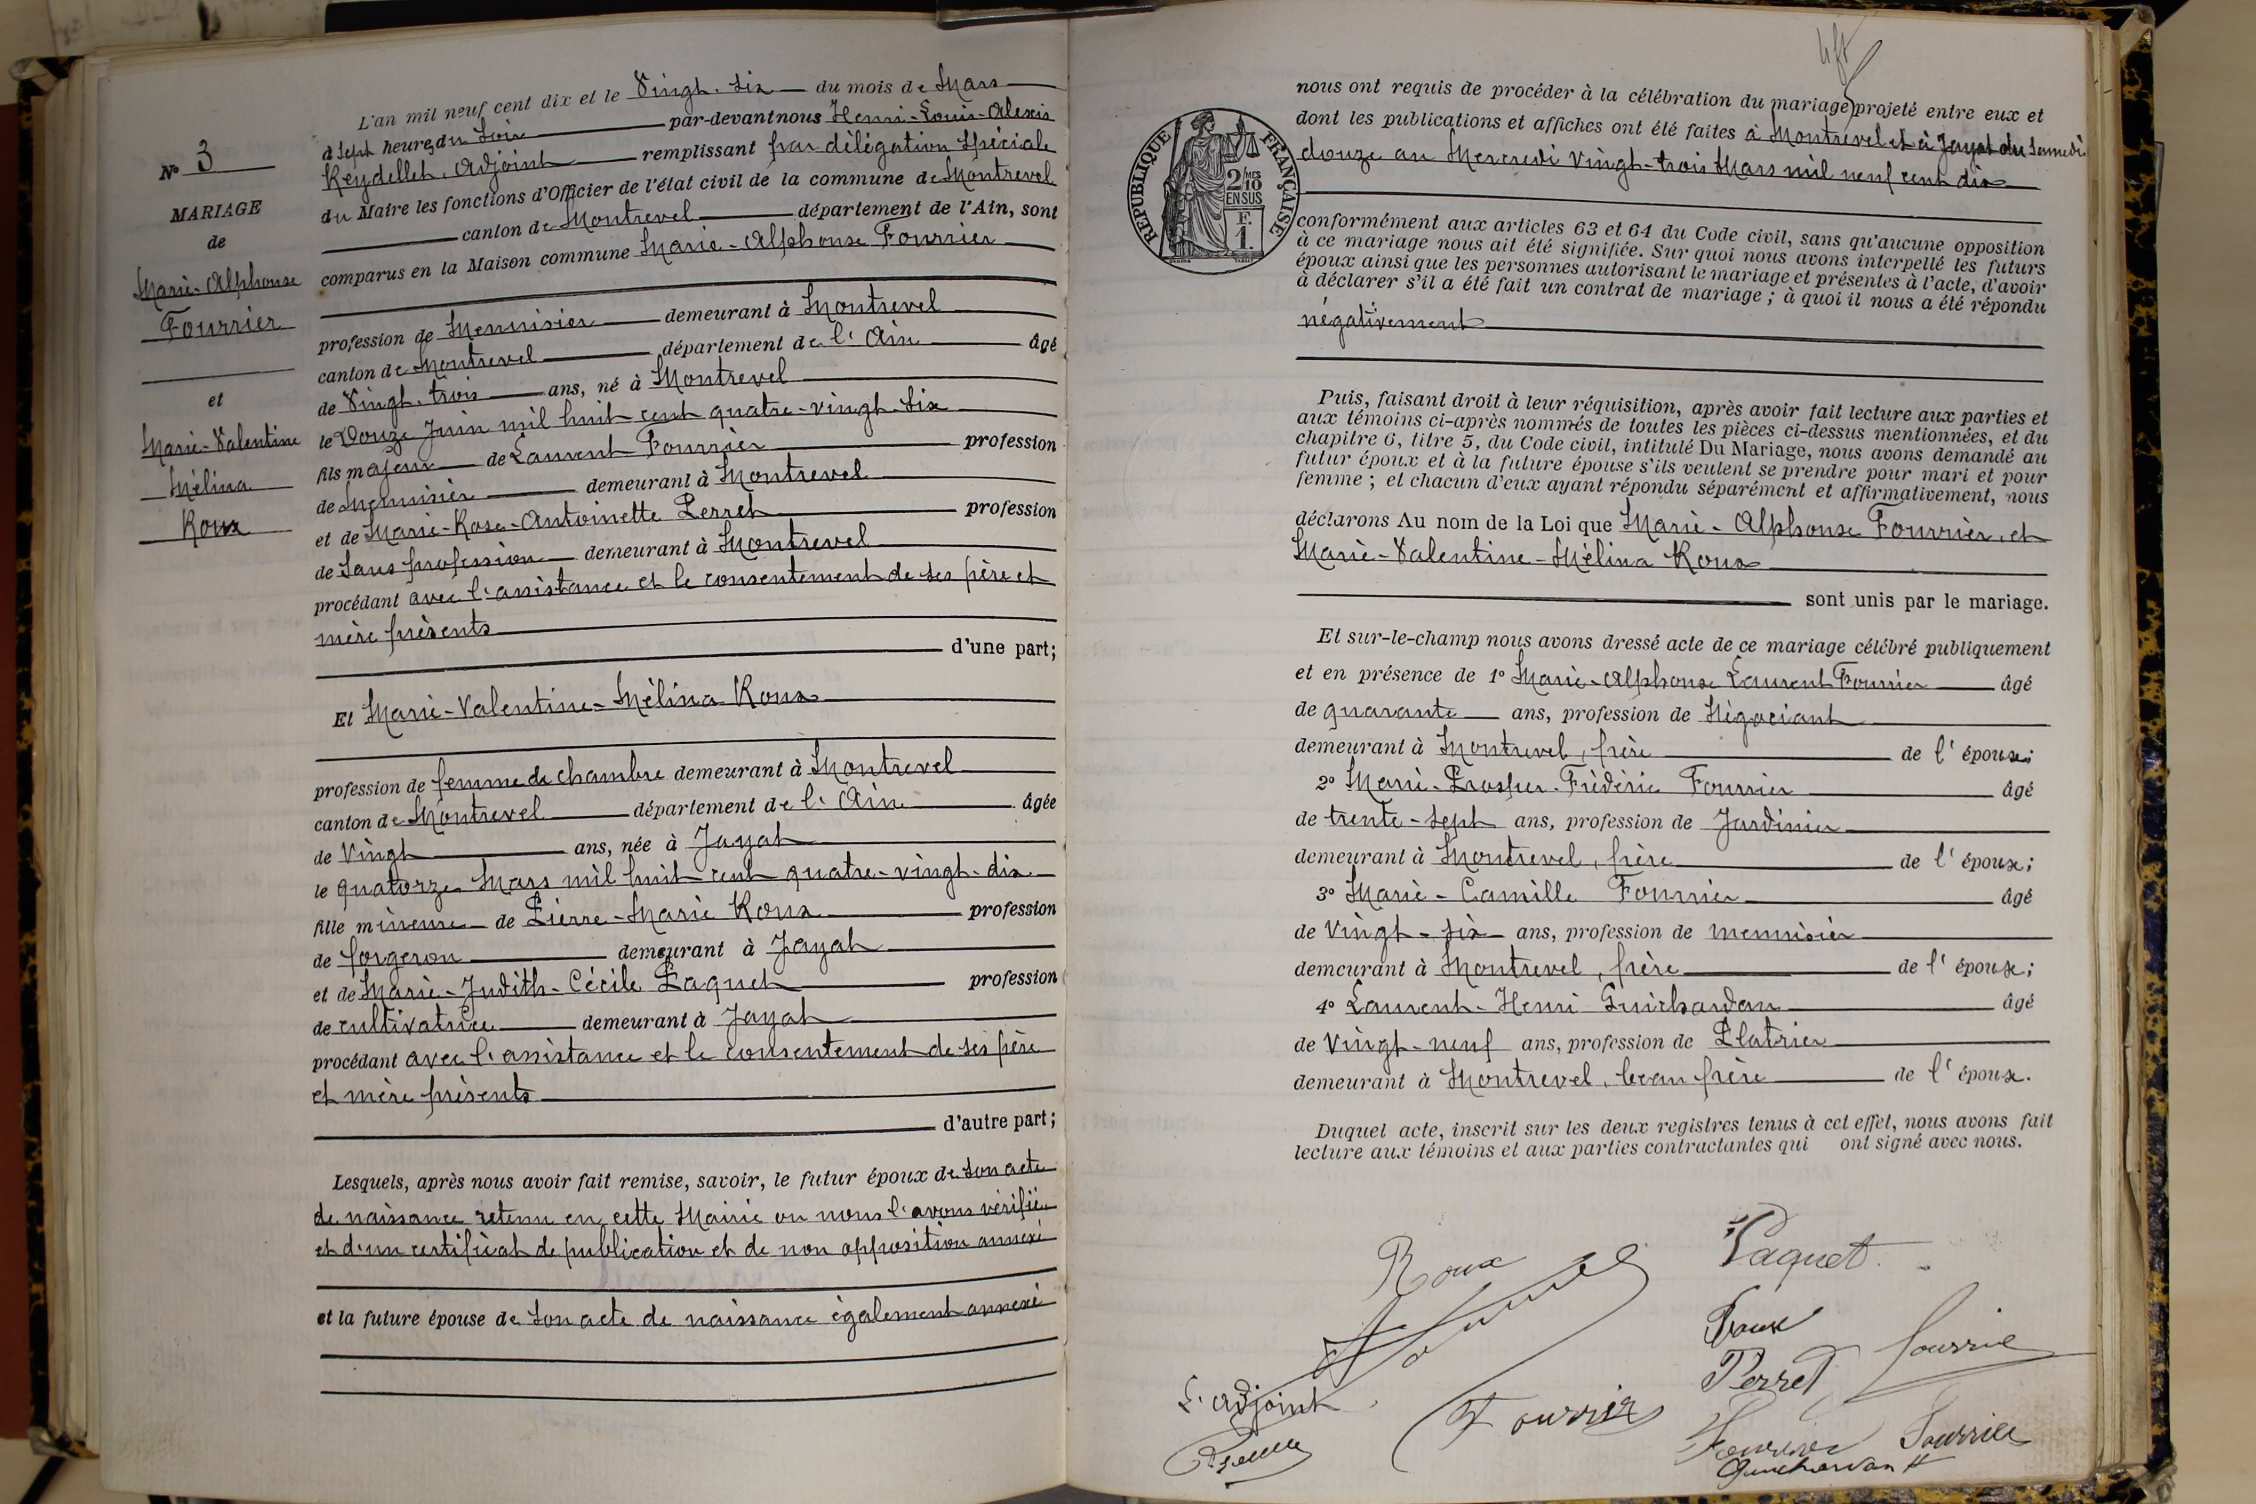 N° 3
MARIAGE
de
Marie-Alphonse
Fourrier
et
Marie-Valentine
Mélina
Roux
L'an mil neuf cent dix et le Vingt-six du mois de Mars
à sept heures du Soir par-devant nous Henri-Louis-Alexis
Reydellet, Adjoint remplissant par délégation spéciale
du Maire les fonctions d'Officier de l'état civil de la commune de Montrevel
canton de Montrevel département de l'Ain, sont
comparus en la Maison commune Marie-Alphonse Fourrier
profession de Menuisier demeurant à Montrevel
canton de Montrevel département de l'Ain âgé
de Vingt-trois ans, né à Montrevel
le Douze Juin mil huit cent quatre-vingt-six
fils majeur de Laurent Fourrier profession
de Menuisier demeurant à Montrevel
et de Marie-Rose-Antoinette Perret profession
de Sans profession demeurant à Montrevel
procédant avec l'assistance et le consentement de ses père et
mère présents
d'une part;
Et Marie-Valentine-Mélina Roux
profession de femme de chambre demeurant à Montrevel
canton de Montrevel département de l'Ain âgée
de Vingt ans, née à Jayat
le quatorze Mars mil huit cent quatre-vingt-dix
fille mineure de Pierre-Marie Roux profession
de forgeron demeurant à Jayat
et de Marie-Judith-Cécile Paquet profession
de cultivatrice demeurant à Jayat
procédant avec l'assistance et le consentement de ses père
et mère présents
d'autre part;
Lesquels, après nous avoir fait remise, savoir, le futur époux de son acte
de naissance retenu en cette Mairie ou nous l'avons vérifié
et d'un certificat de publication et de non opposition annexé
et la future épouse de son acte de naissance également annexé
RÉPUBLIQUE FRANÇAISE
2/10 MES
EN SUS
F.
1.
nous ont requis de procéder à la célébration du mariage projeté entre eux et
dont les publications et affiches ont été faites à Montrevel et à Jayat du Samedi
douze au Mercredi Vingt-trois Mars mil neuf cent dix
conformément aux articles 63 et 64 du Code civil, sans qu'aucune opposition
à ce mariage nous ait été signifiée. Sur quoi nous avons interpellé les futurs
époux ainsi que les personnes autorisant le mariage et présentes à l'acte, d'avoir
à déclarer s'il a été fait un contrat de mariage; à quoi il nous a été répondu
négativement
Puis, faisant droit à leur réquisition, après avoir fait lecture aux parties et
aux témoins ci-après nommés de toutes les pièces ci-dessus mentionnées, et du
chapitre 6, titre 5, du Code civil, intitulé Du Mariage, nous avons demandé au
futur époux et à la future épouse s'ils veulent se prendre pour mari et pour
femme; et chacun d'eux ayant répondu séparément et affirmativement, nous
déclarons Au nom de la Loi que Marie-Alphonse Fourrier, et
Marie-Valentine-Mélina Roux
sont unis par le mariage.
Et sur-le-champ nous avons dressé acte de ce mariage célébré publiquement
et en présence de 1° Marie-Alphonse Laurent Fourrier âgé
de quarante ans, profession de Négociant
demeurant à Montrevel, frère de l'époux;
2° Marie-Prosper-Frédéric Fourrier âgé
de trente-sept ans, profession de Jardinier
demeurant à Montrevel, frère de l'époux;
3° Marie-Camille Fourrier âgé
de Vingt-six ans, profession de menuisier
demeurant à Montrevel, frère de l'époux;
4° Laurent-Henri Guichardan âgé
de Vingt-neuf ans, profession de Platrier
demeurant à Montrevel, beau frère de l'époux.
Duquel acte, inscrit sur les deux registres tenus à cet effet, nous avons fait
lecture aux témoins et aux parties contractantes qui ont signé avec nous.
Roux
Paquet
Roux
Fourrier
Perret
L'adjoint
Fourrier
Fourrier
Fourrier
Guichardan H